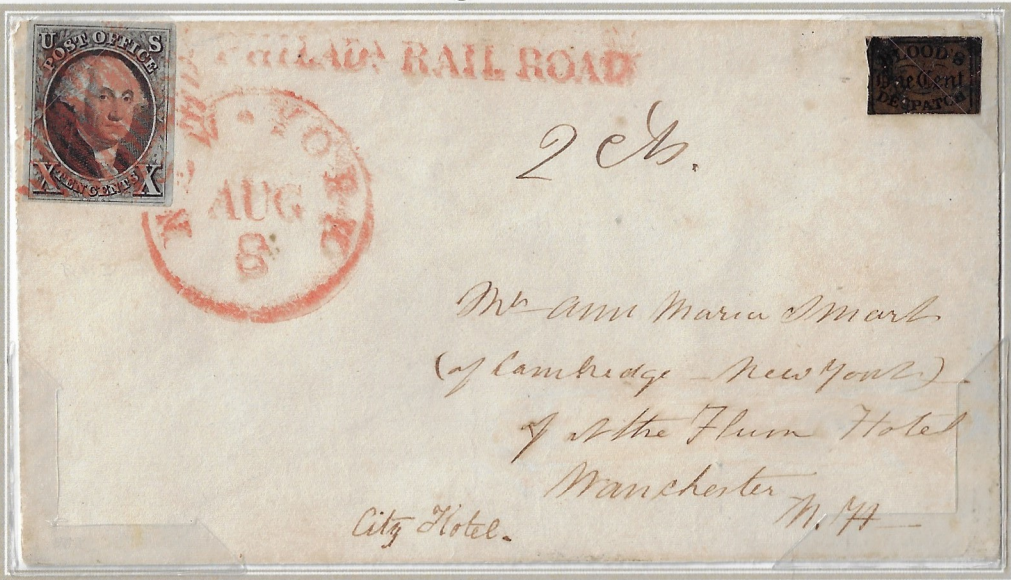 U S
POST OFFICE
X TEN CENTS X
PHILADA RAIL ROAD
YORK
AUG
8
BLOOD'S
One Cent
DESPATCH
2 cts.
Mrs Ann Maria Smart
(of Cambridge - New York)
at the Flum Hotel
Manchester
N. H
City Hotel.